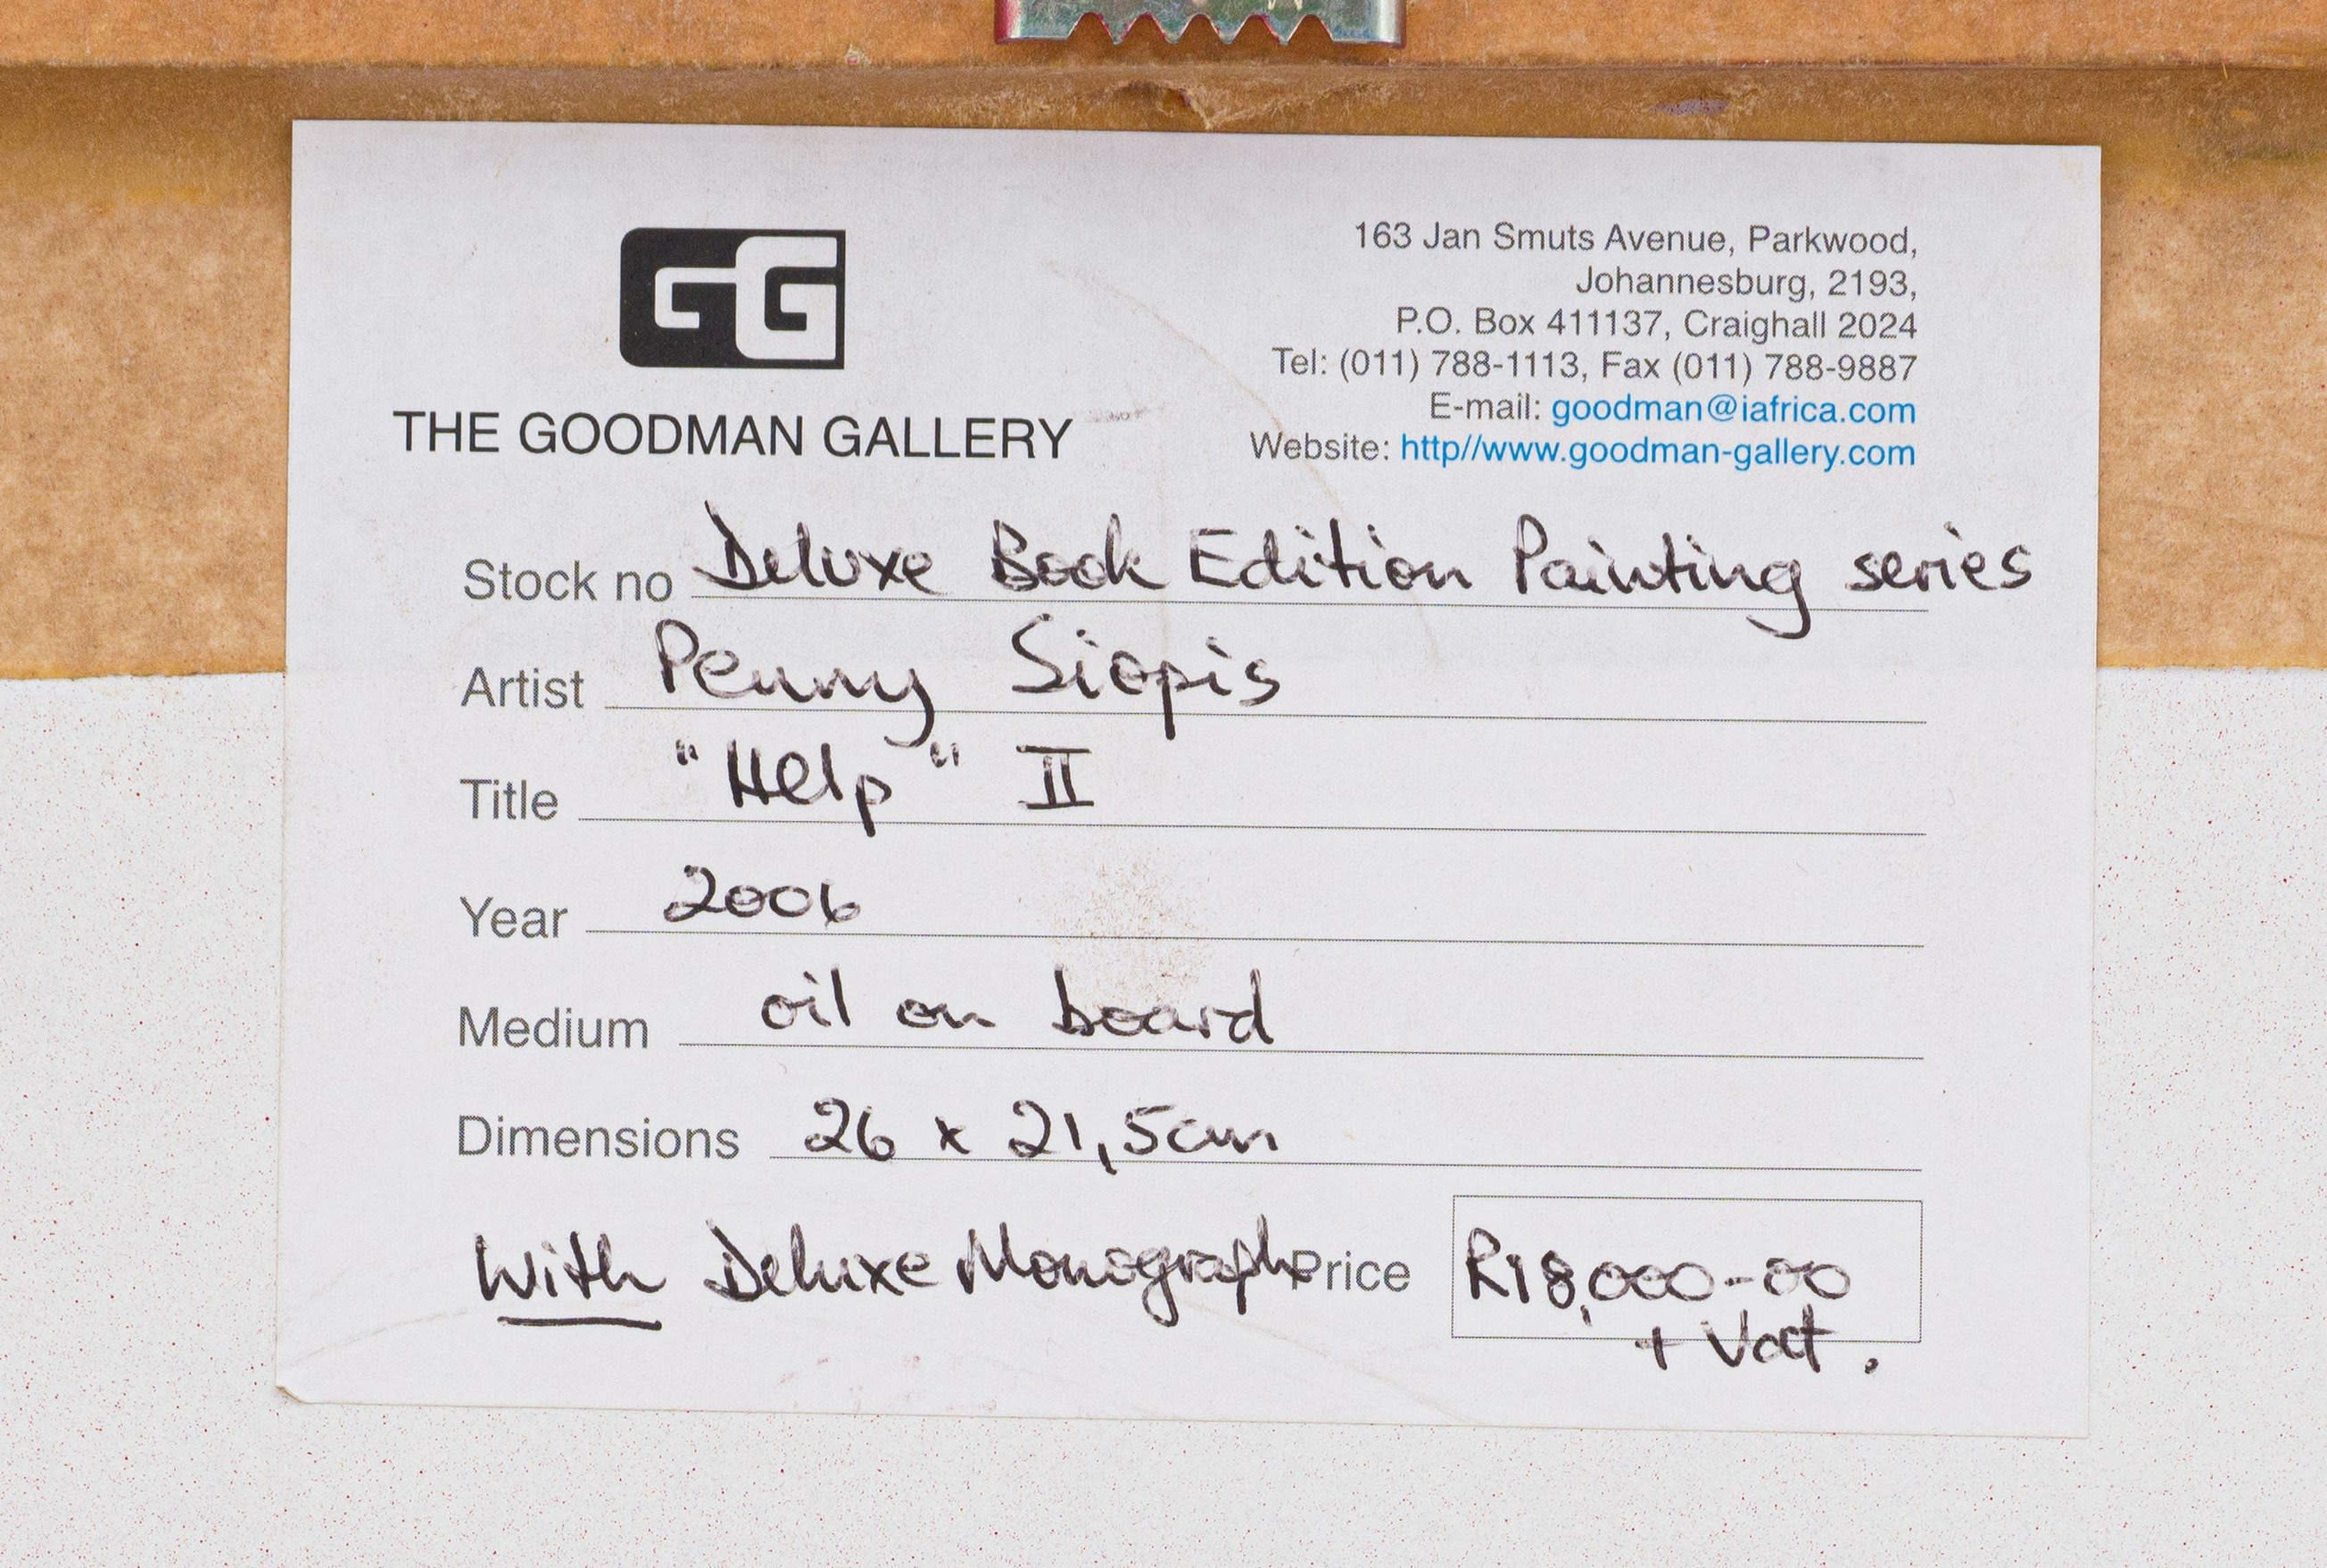 GG
THE GOODMAN GALLERY
163 Jan Smuts Avenue, Parkwood,
Johannesburg, 2193,
P.O. Box 411137, Craighall 2024
Tel: (011) 788-1113, Fax (011) 788-9887
E-mail: goodman@iafrica.com
Website: http//www.goodman-gallery.com
Stock no Deluxe Book Edition Painting series
Artist Penny Siopis
Title "Help" II
Year 2006
Medium oil on board
Dimensions 26 x 21,5cm
With Deluxe Monograph Price R18,000-00
+ Vat.